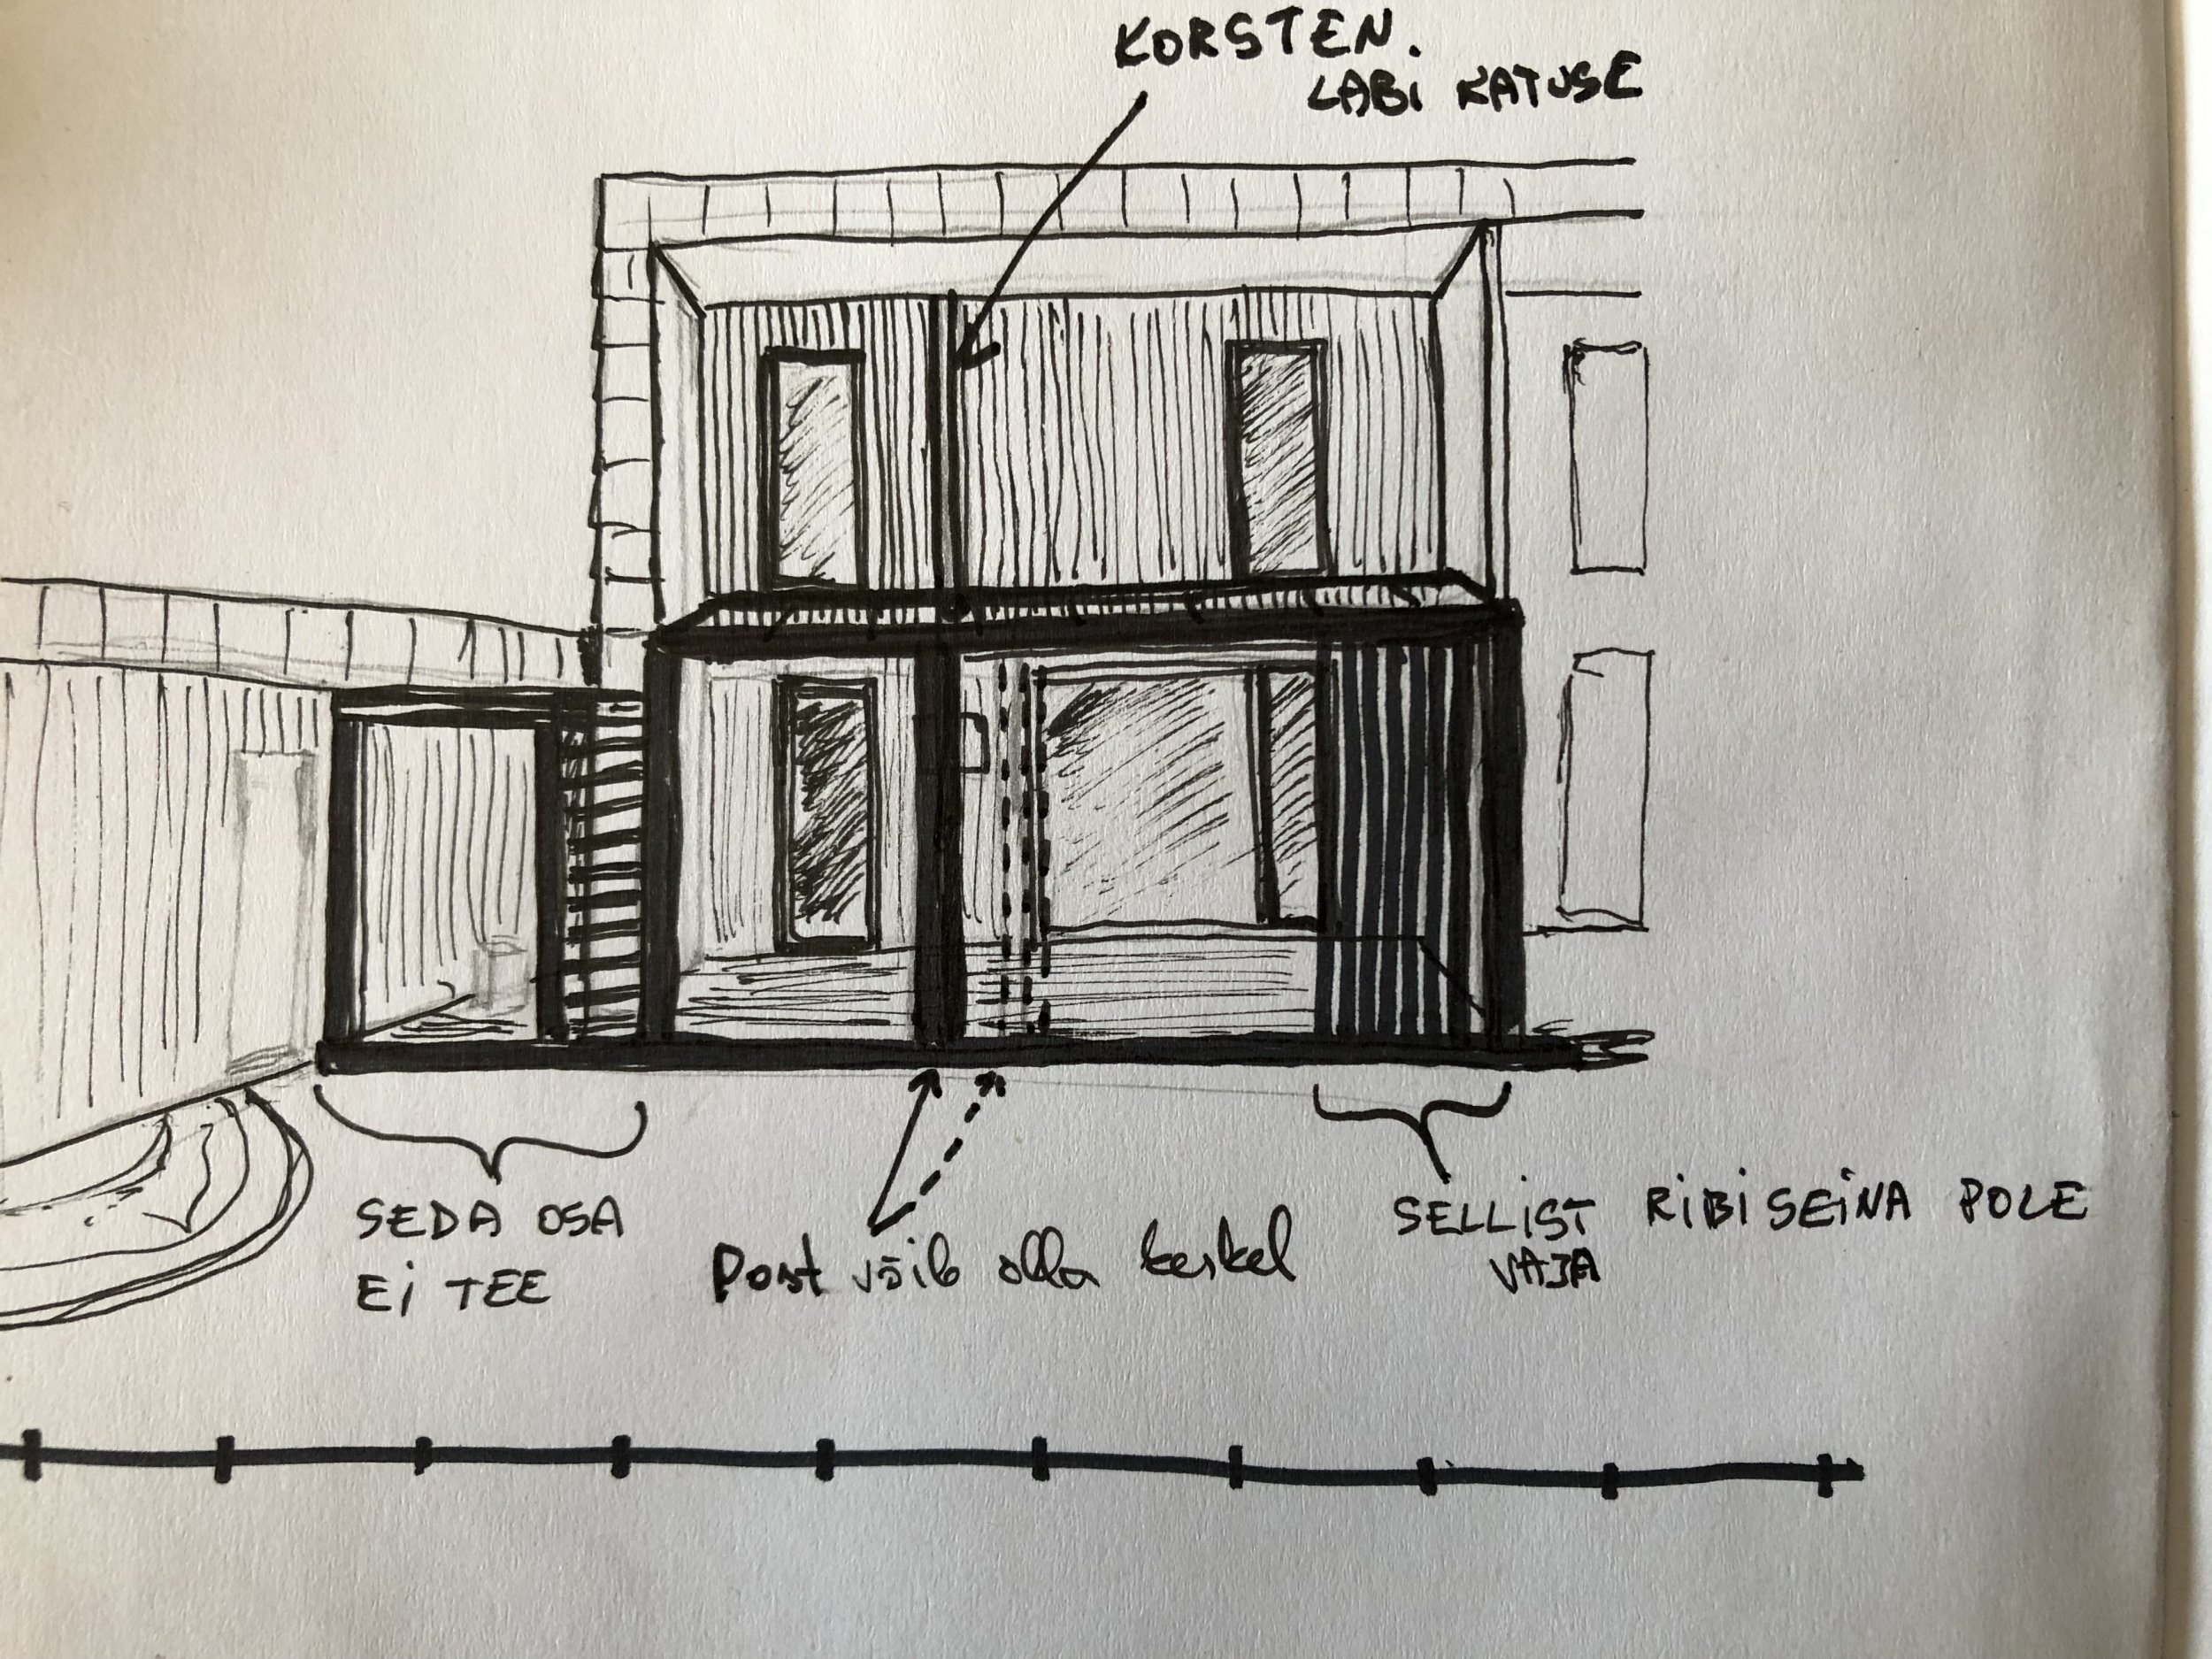 KORSTEN.
LÄBI KATUSE
SEDA OSA
EI TEE
Post võib olla keskel
SELLIST RIBISEINA POLE
VAJA